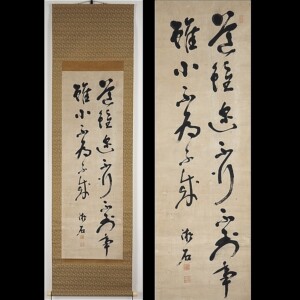 道雖邇不行不至事
雖小不為不成
漱石